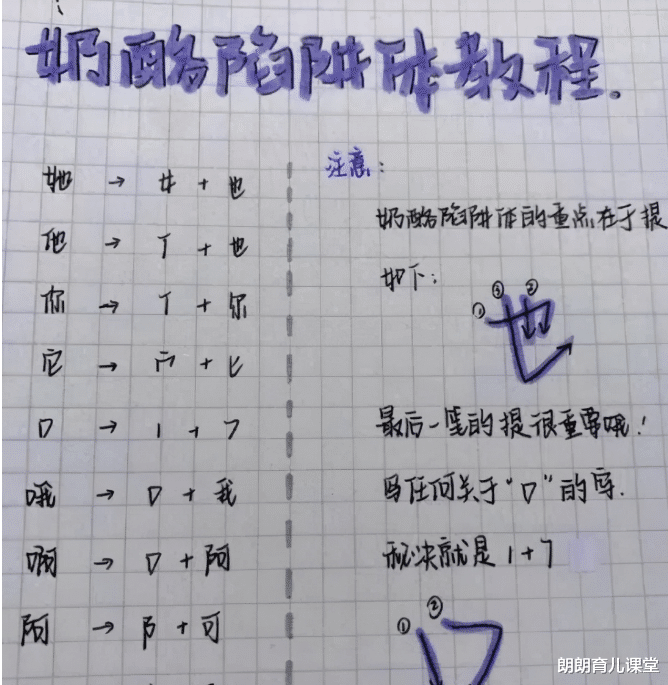 奶酪陷阱体教程.
她 → 女 + 也
他 → 亻 + 也
你 → 亻 + 尔
它 → 宀 + 匕
口 → 1 + 7
哦 → 口 + 我
啊 → 口 + 阿
阿 → 阝 + 可
注意:
奶酪陷阱体的重点在于提
如下:
① ③ ②
也
最后一笔的提很重要哦!
写任何关于“口”的字.
秘诀就是 1+7
① ②
口
朗朗育儿课堂